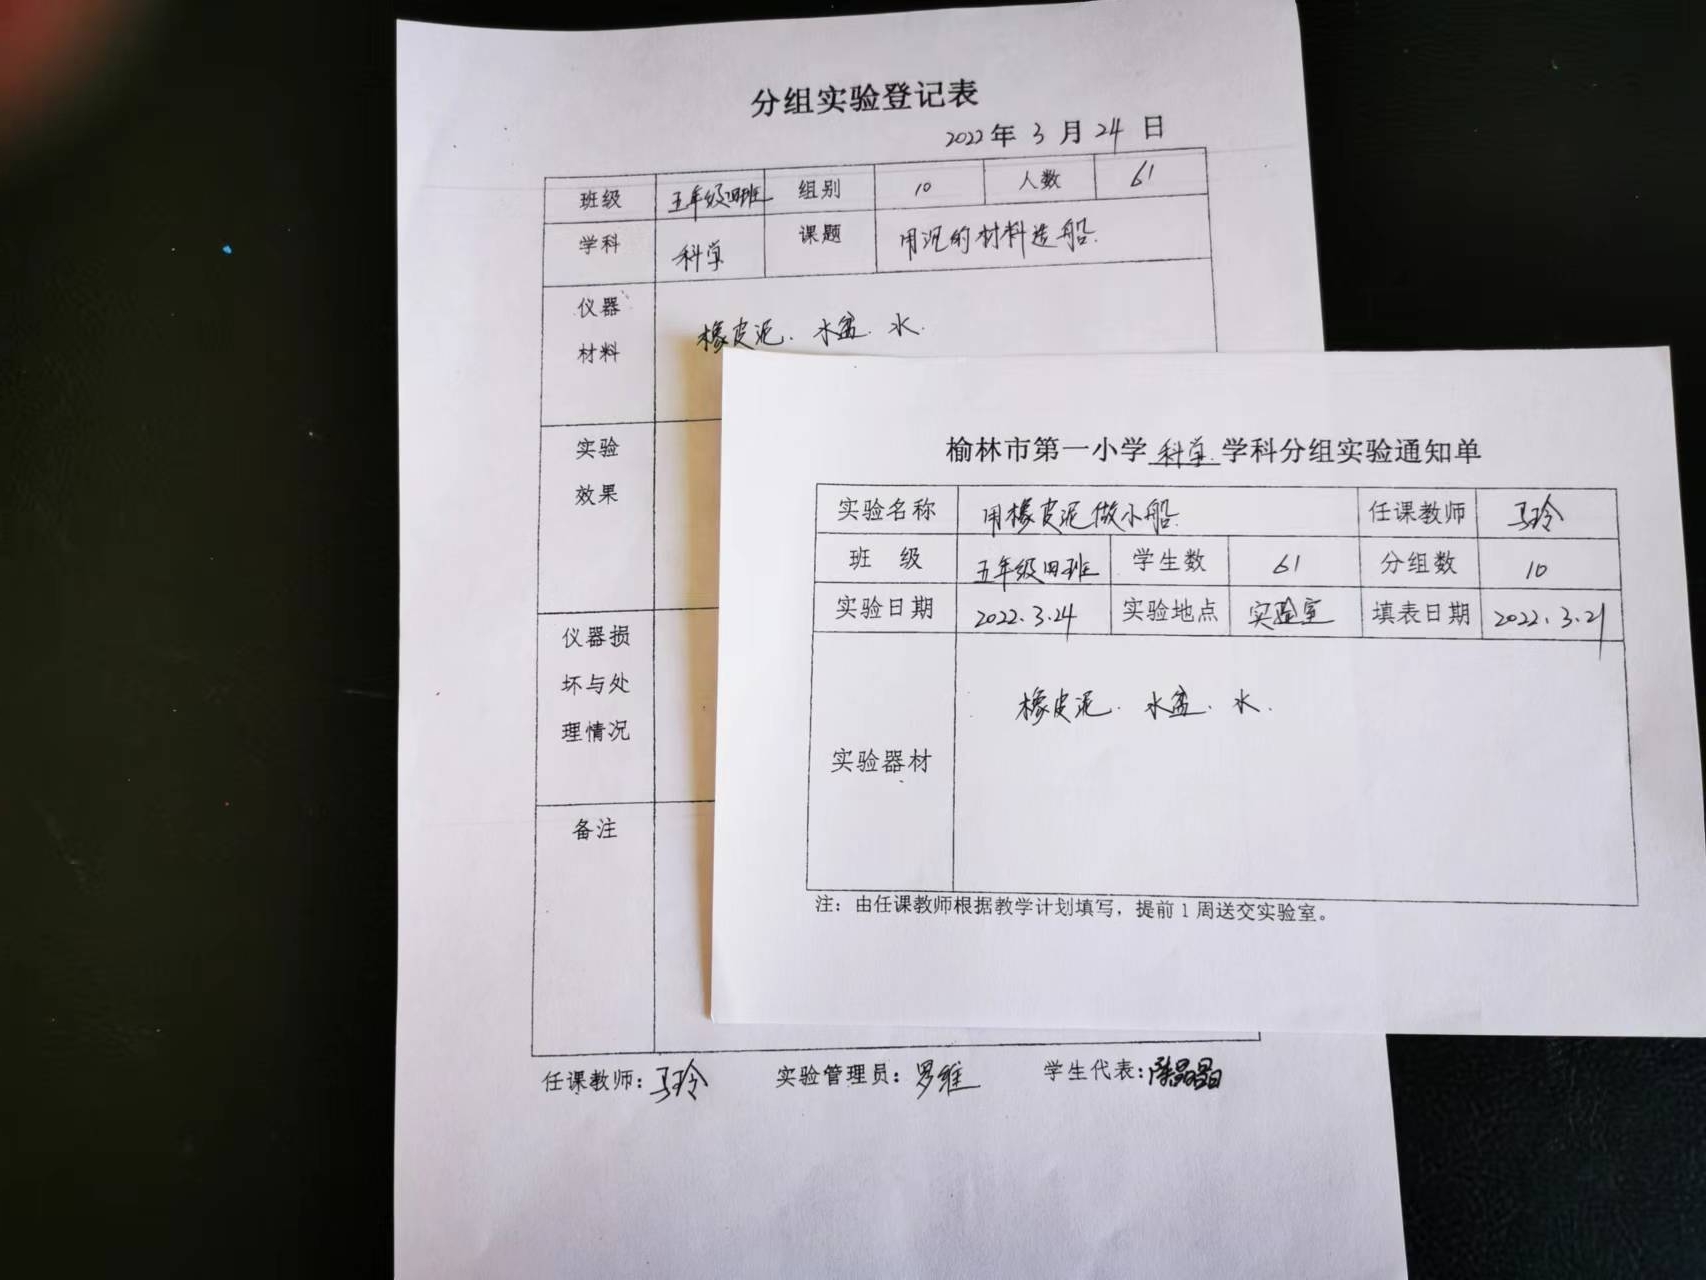 分组实验登记表
2022年 3 月 24 日
班级 五年级四班 组别 10 人数 61
学科 科学 课题 用沉的材料造船.
仪器
材料
橡皮泥. 水盆. 水.
实验
效果
仪器损
坏与处
理情况
备注
任课教师：马玲 实验管理员：罗维 学生代表：陈晶晶
榆林市第一小学 科学 学科分组实验通知单
实验名称 用橡皮泥做小船. 任课教师 马玲
班 级 五年级四班 学生数 61 分组数 10
实验日期 2022.3.24 实验地点 实验室 填表日期 2022.3.21
实验器材 橡皮泥. 水盆. 水.
注：由任课教师根据教学计划填写，提前1周送交实验室。